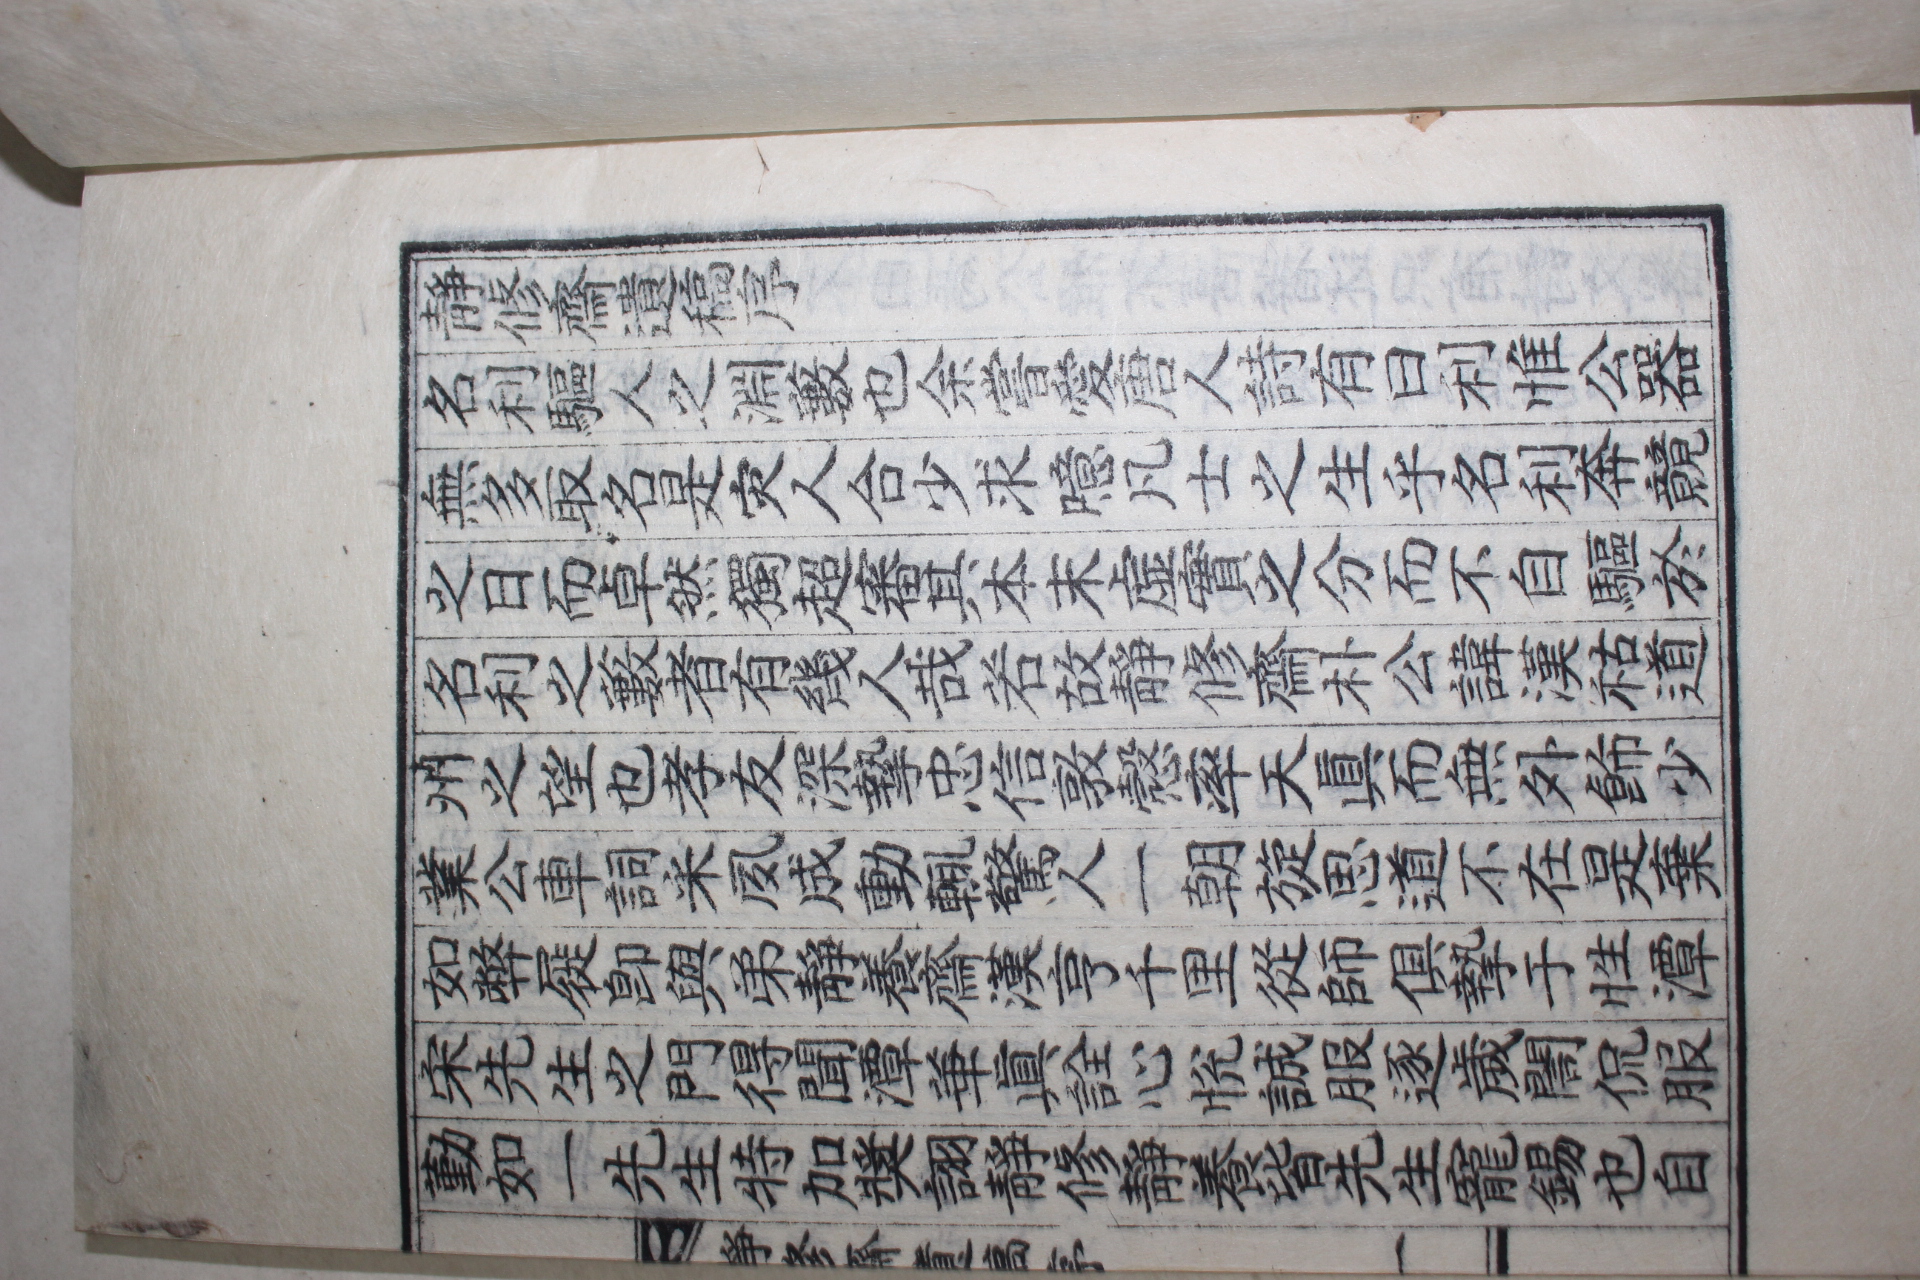 靜修齋遺稿序
名利驅人之淵藪也余嘗愛唐人詩有曰利惟公器
無多取名是安人合少求噫凡士之生乎名利奔競
之日而卓然獨超審其本末虛實之分而不自驅於
名利之藪者有幾人哉若故靜修齋朴公諱漢祐道
州之望也孝友深摯忠信敦慤率天眞而無外飾少
業公車詞采夙成動輒驚人一朝旋思道不在是棄
如弊屣卽與弟靜養齋漢亨千里從師俱摯于性潭
宋先生之門得聞潭華眞詮心悅誠服逐歲閒侃服
勤如一先生特加奬詡靜修靜養皆先生寵錫也自
靜修齋遺稿序 一